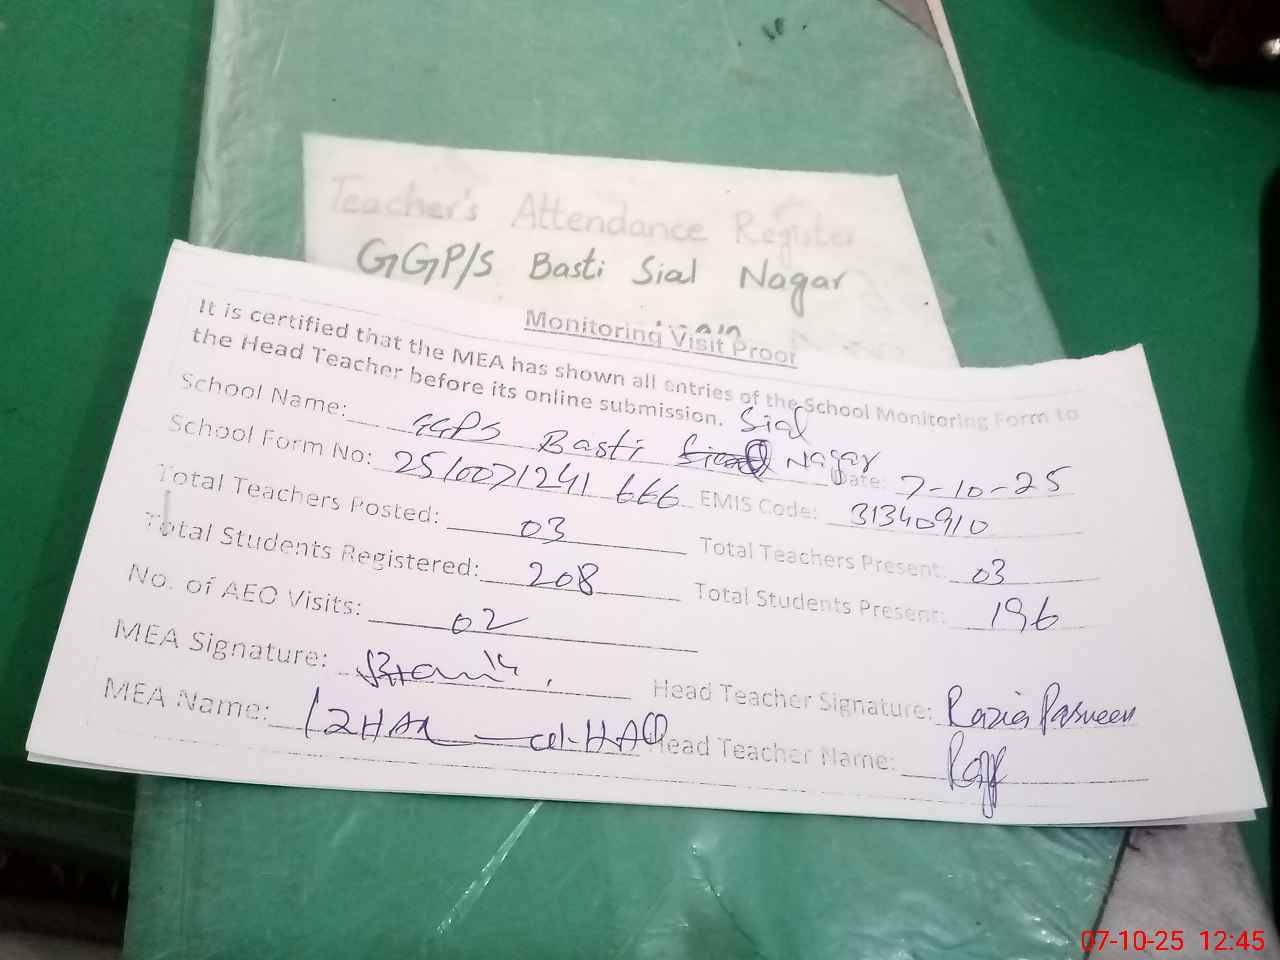 Teacher's Attendance Register
GGP/S Basti Sial Nagar
Monitoring Visit Proof
It is certified that the MEA has shown all entries of the School Monitoring Form to
the Head Teacher before its online submission.
School Name: GGPS Basti Sial Nagar Date: 7-10-25
School Form No: 2510071241 666 EMIS Code: 31340910
Total Teachers Posted: 03 Total Teachers Present: 03
Total Students Registered: 208 Total Students Present: 196
No. of AEO Visits: 02
MEA Signature: Head Teacher Signature: Razia Parveen
MEA Name: Head Teacher Name:
07-10-25 12:45